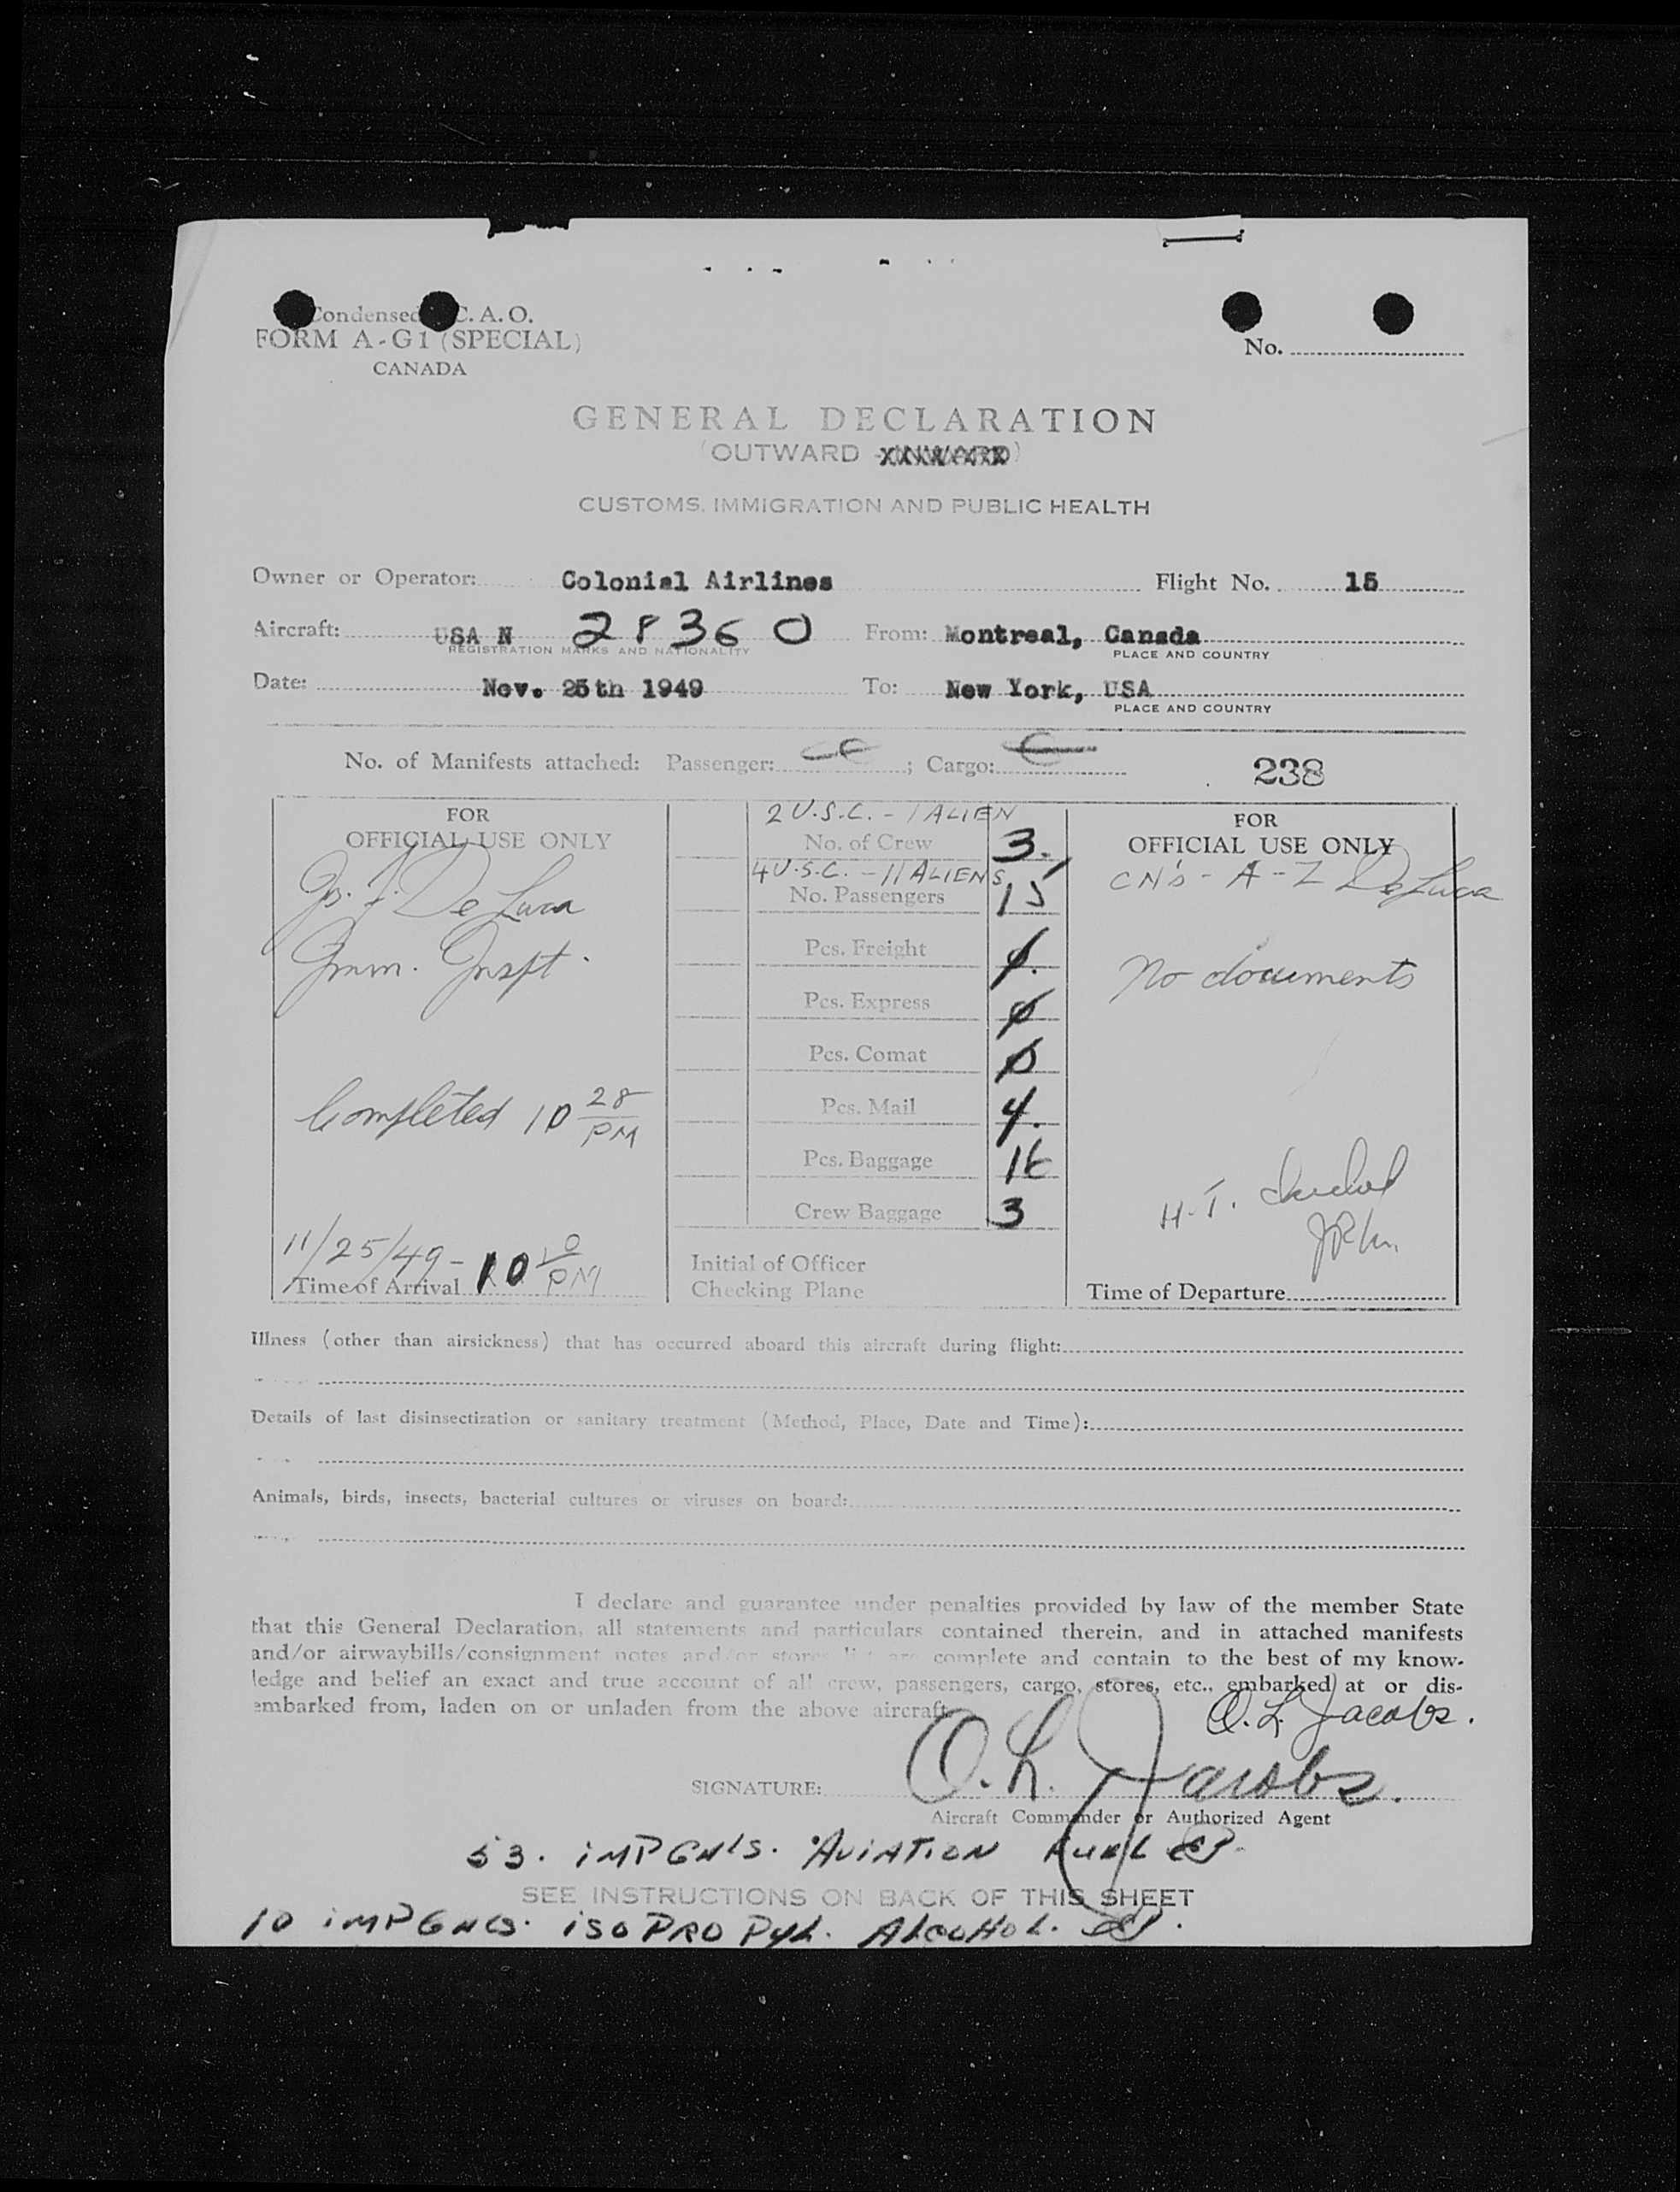 Condensed C. A. O.
FORM A-G1 (SPECIAL)
CANADA
No.
GENERAL DECLARATION
(OUTWARD
CUSTOMS, IMMIGRATION AND PUBLIC HEALTH
Owner or Operator: Colonial Airlines Flight No. 15
Aircraft: USA N 28360 From: Montreal, Canada
REGISTRATION MARKS AND NATIONALITY PLACE AND COUNTRY
Date: Nov. 25th 1949 To: New York, USA
PLACE AND COUNTRY
No. of Manifests attached: Passenger: ; Cargo:
238
FOR
OFFICIAL USE ONLY
De Luca
Imm. Inspt.
Completed 10 28 PM
11/25/49 - 10
PM
Time of Arrival
2 U.S.C. - 1 ALIEN
No. of Crew 3.
4 U.S.C. - 11 ALIENS
No. Passengers 15
Pcs. Freight ∅.
Pcs. Express ∅
Pcs. Comat ∅
Pcs. Mail 4.
Pcs. Baggage
Crew Baggage 3
Initial of Officer
Checking Plane
FOR
OFFICIAL USE ONLY
CN's - A - Z De Luca
No documents
H. T.
Time of Departure
Illness (other than airsickness) that has occurred aboard this aircraft during flight:
Details of last disinsectization or sanitary treatment (Method, Place, Date and Time):
Animals, birds, insects, bacterial cultures or viruses on board:
I declare and guarantee under penalties provided by law of the member State
that this General Declaration, all statements and particulars contained therein, and in attached manifests
and/or airwaybills/consignment notes and/or stores list are complete and contain to the best of my know-
ledge and belief an exact and true account of all crew, passengers, cargo, stores, etc., embarked at or dis-
embarked from, laden on or unladen from the above aircraft
O. L. Jacobs.
SIGNATURE: O. L. Jacobs.
Aircraft Commander or Authorized Agent
53. IMPGNLS. AVIATION FUEL
SEE INSTRUCTIONS ON BACK OF THIS SHEET
10 IMPGNLS. ISOPROPYL. ALCOHOL.